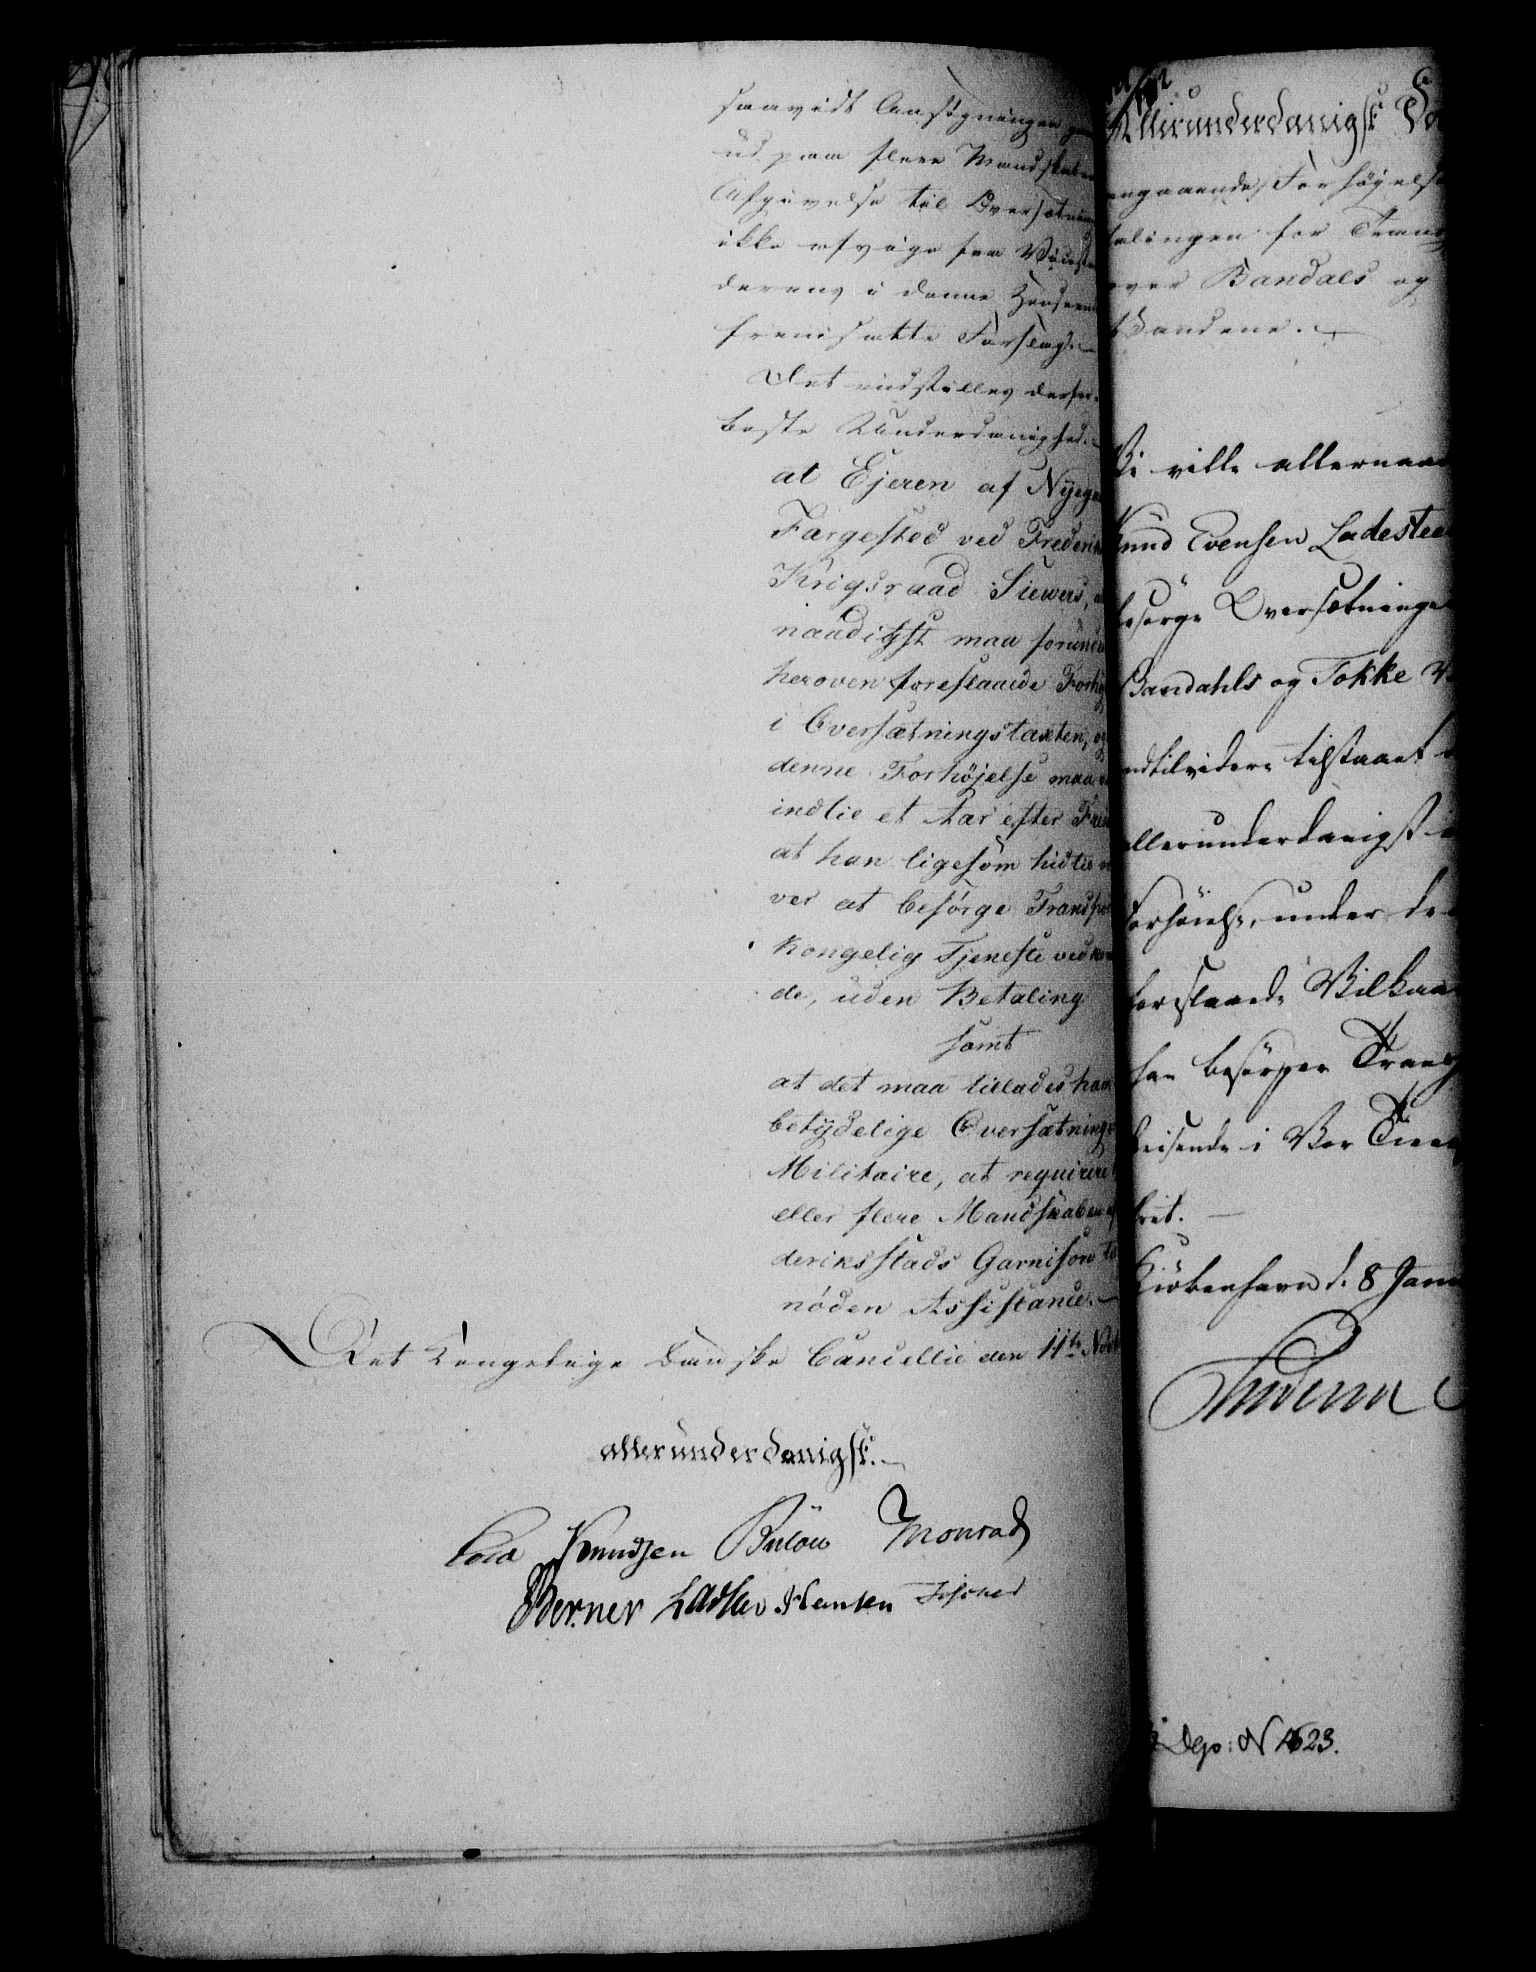 saavidt Ansøgningen
ud paa flere Mandskabers
Afgivelse til Oversætning
ikke afvige fra
derens i denne Henseende
fremsatte Forslag.
Det indstilles derfor
beste Underdanighed.
at Ejeren af Nyegaards
Færgested ved Frederik
Krigsraad Siewers,
naadigst maa forunde
heroven foreslaaede Forhøj
i Oversætningstaxten, og
denne Forhøjelse maa
indtil et Aar efter Fred
at han ligesom hidtil
ver at besørge Transport
Kongelig Tjeneste ved
de, uden Betaling
samt
at det maa tillades ham
betydelige Oversætning
Militaire, at requirere
eller flere Mandskaber af
deriksstads Garnison til
nøden Assistance.
Det Kongelige Danske Cancellie den 11te Nov
allerunderdanigst.
Knudsen Bülow Monrad
Berner Lassen Hansen
Allerunderdanigst Fo
engaaende Forhøyelse
talingen for Trans
over Bandals og
Vandene.
Vi ville allernaad
Knud Evensen Ladesteen
besørge Oversætninge
Bandahls og Tokke V
indtilvidere tilstaaet
allerunderdanigst
Forhøielse, under de
foreslaaede Vilkaar
han besørger Trans
Reisende i Vor Tiene
frit.
Kiøbenhavn d. 8 Janu
Dep: N 1623.